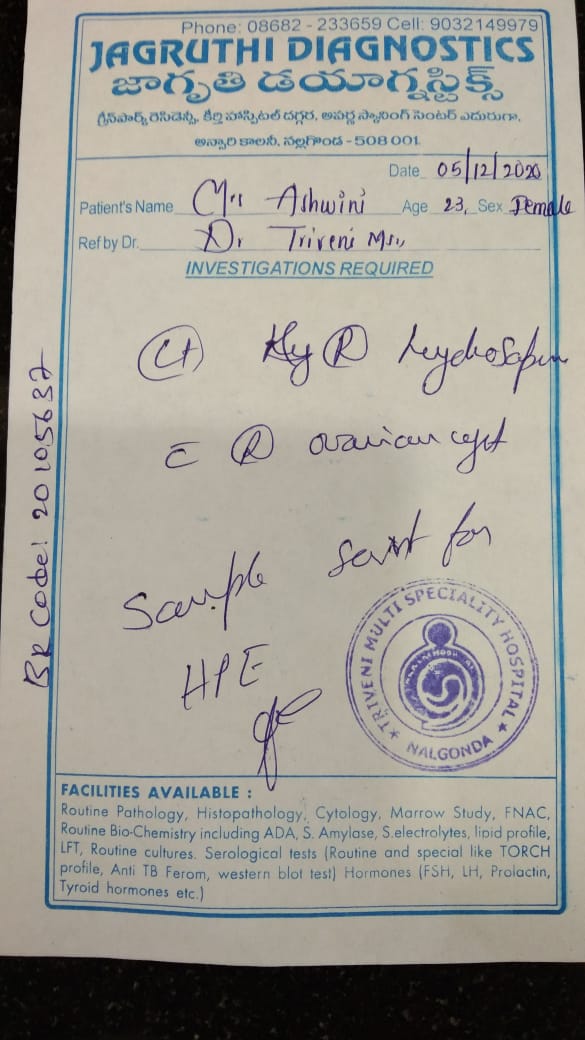 Phone: 08682 - 233659 Cell: 9032149979
JAGRUTHI DIAGNOSTICS
జాగృతి డయాగ్నస్టిక్స్
గ్రీన్‌పార్క్ రెసిడెన్సి, కీర్తి హాస్పిటల్ దగ్గర, అపర్ణ స్కానింగ్ సెంటర్ ఎదురుగా,
అన్సారి కాలనీ, నల్లగొండ - 508 001.
Date 05/12/2020
Patient's Name Mrs Ashwini Age 23, Sex Female
Ref by Dr. Dr Triveni
INVESTIGATIONS REQUIRED
Ⓡ
c̄ Ⓡ ovarian cyst
Sample sent for
HPE
BR Code! 20105637
TRIVENI MULTI SPECIALITY HOSPITAL
★ NALGONDA ★
FACILITIES AVAILABLE :
Routine Pathology, Histopathology, Cytology, Marrow Study, FNAC,
Routine Bio-Chemistry including ADA, S. Amylase, S.electrolytes, lipid profile,
LFT, Routine cultures. Serological tests (Routine and special like TORCH
profile, Anti TB Ferom, western blot test) Hormones (FSH, LH, Prolactin,
Tyroid hormones etc.)